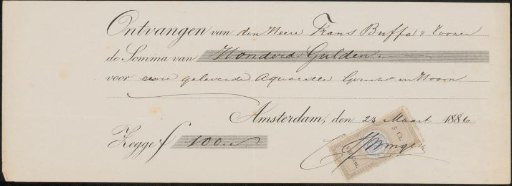 Ontvangen van den Heere Frans Buffa & Zoonen
de Somma van Honderd Gulden
voor eene geleverde Aquarelle
Amsterdam, den 23 Maart 1886
Zegge ƒ 100.-